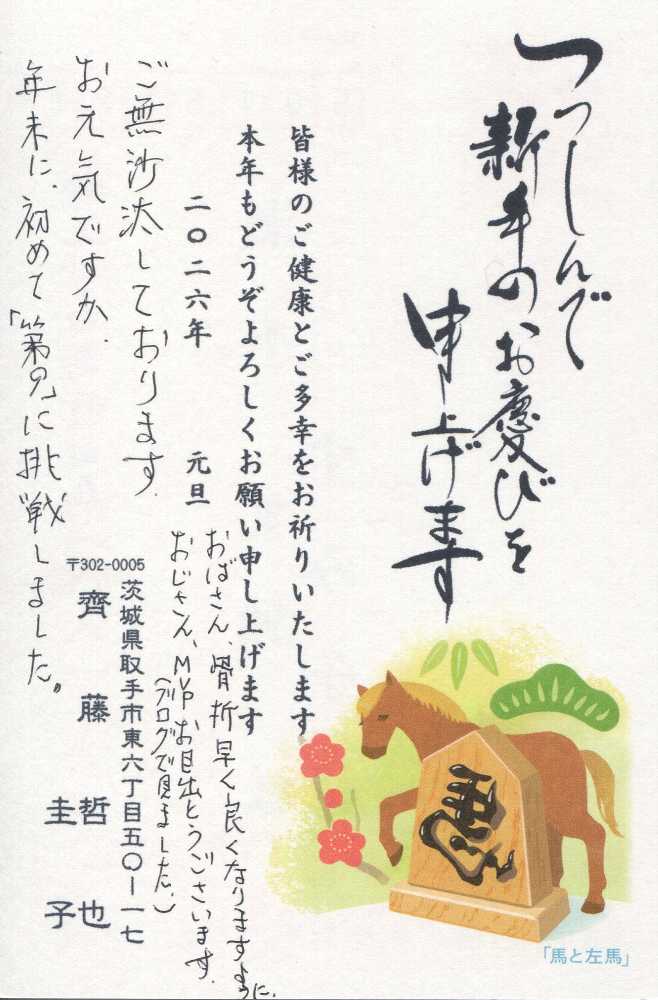 つつしんで
新年のお慶びを
申し上げます
皆様のご健康とご多幸をお祈りいたします
本年もどうぞよろしくお願い申し上げます
二〇二六年 元旦
おばさん、骨折早く良くなりますように.
おじさん、MVPお目出とうございます.
(ブログで見ました.)
ご無沙汰しております.
お元気ですか.
年末に、初めて「第九」に挑戦しました。
〒302-0005
茨城県取手市東六丁目五〇ー一七
齊藤哲也
圭子
「馬と左馬」